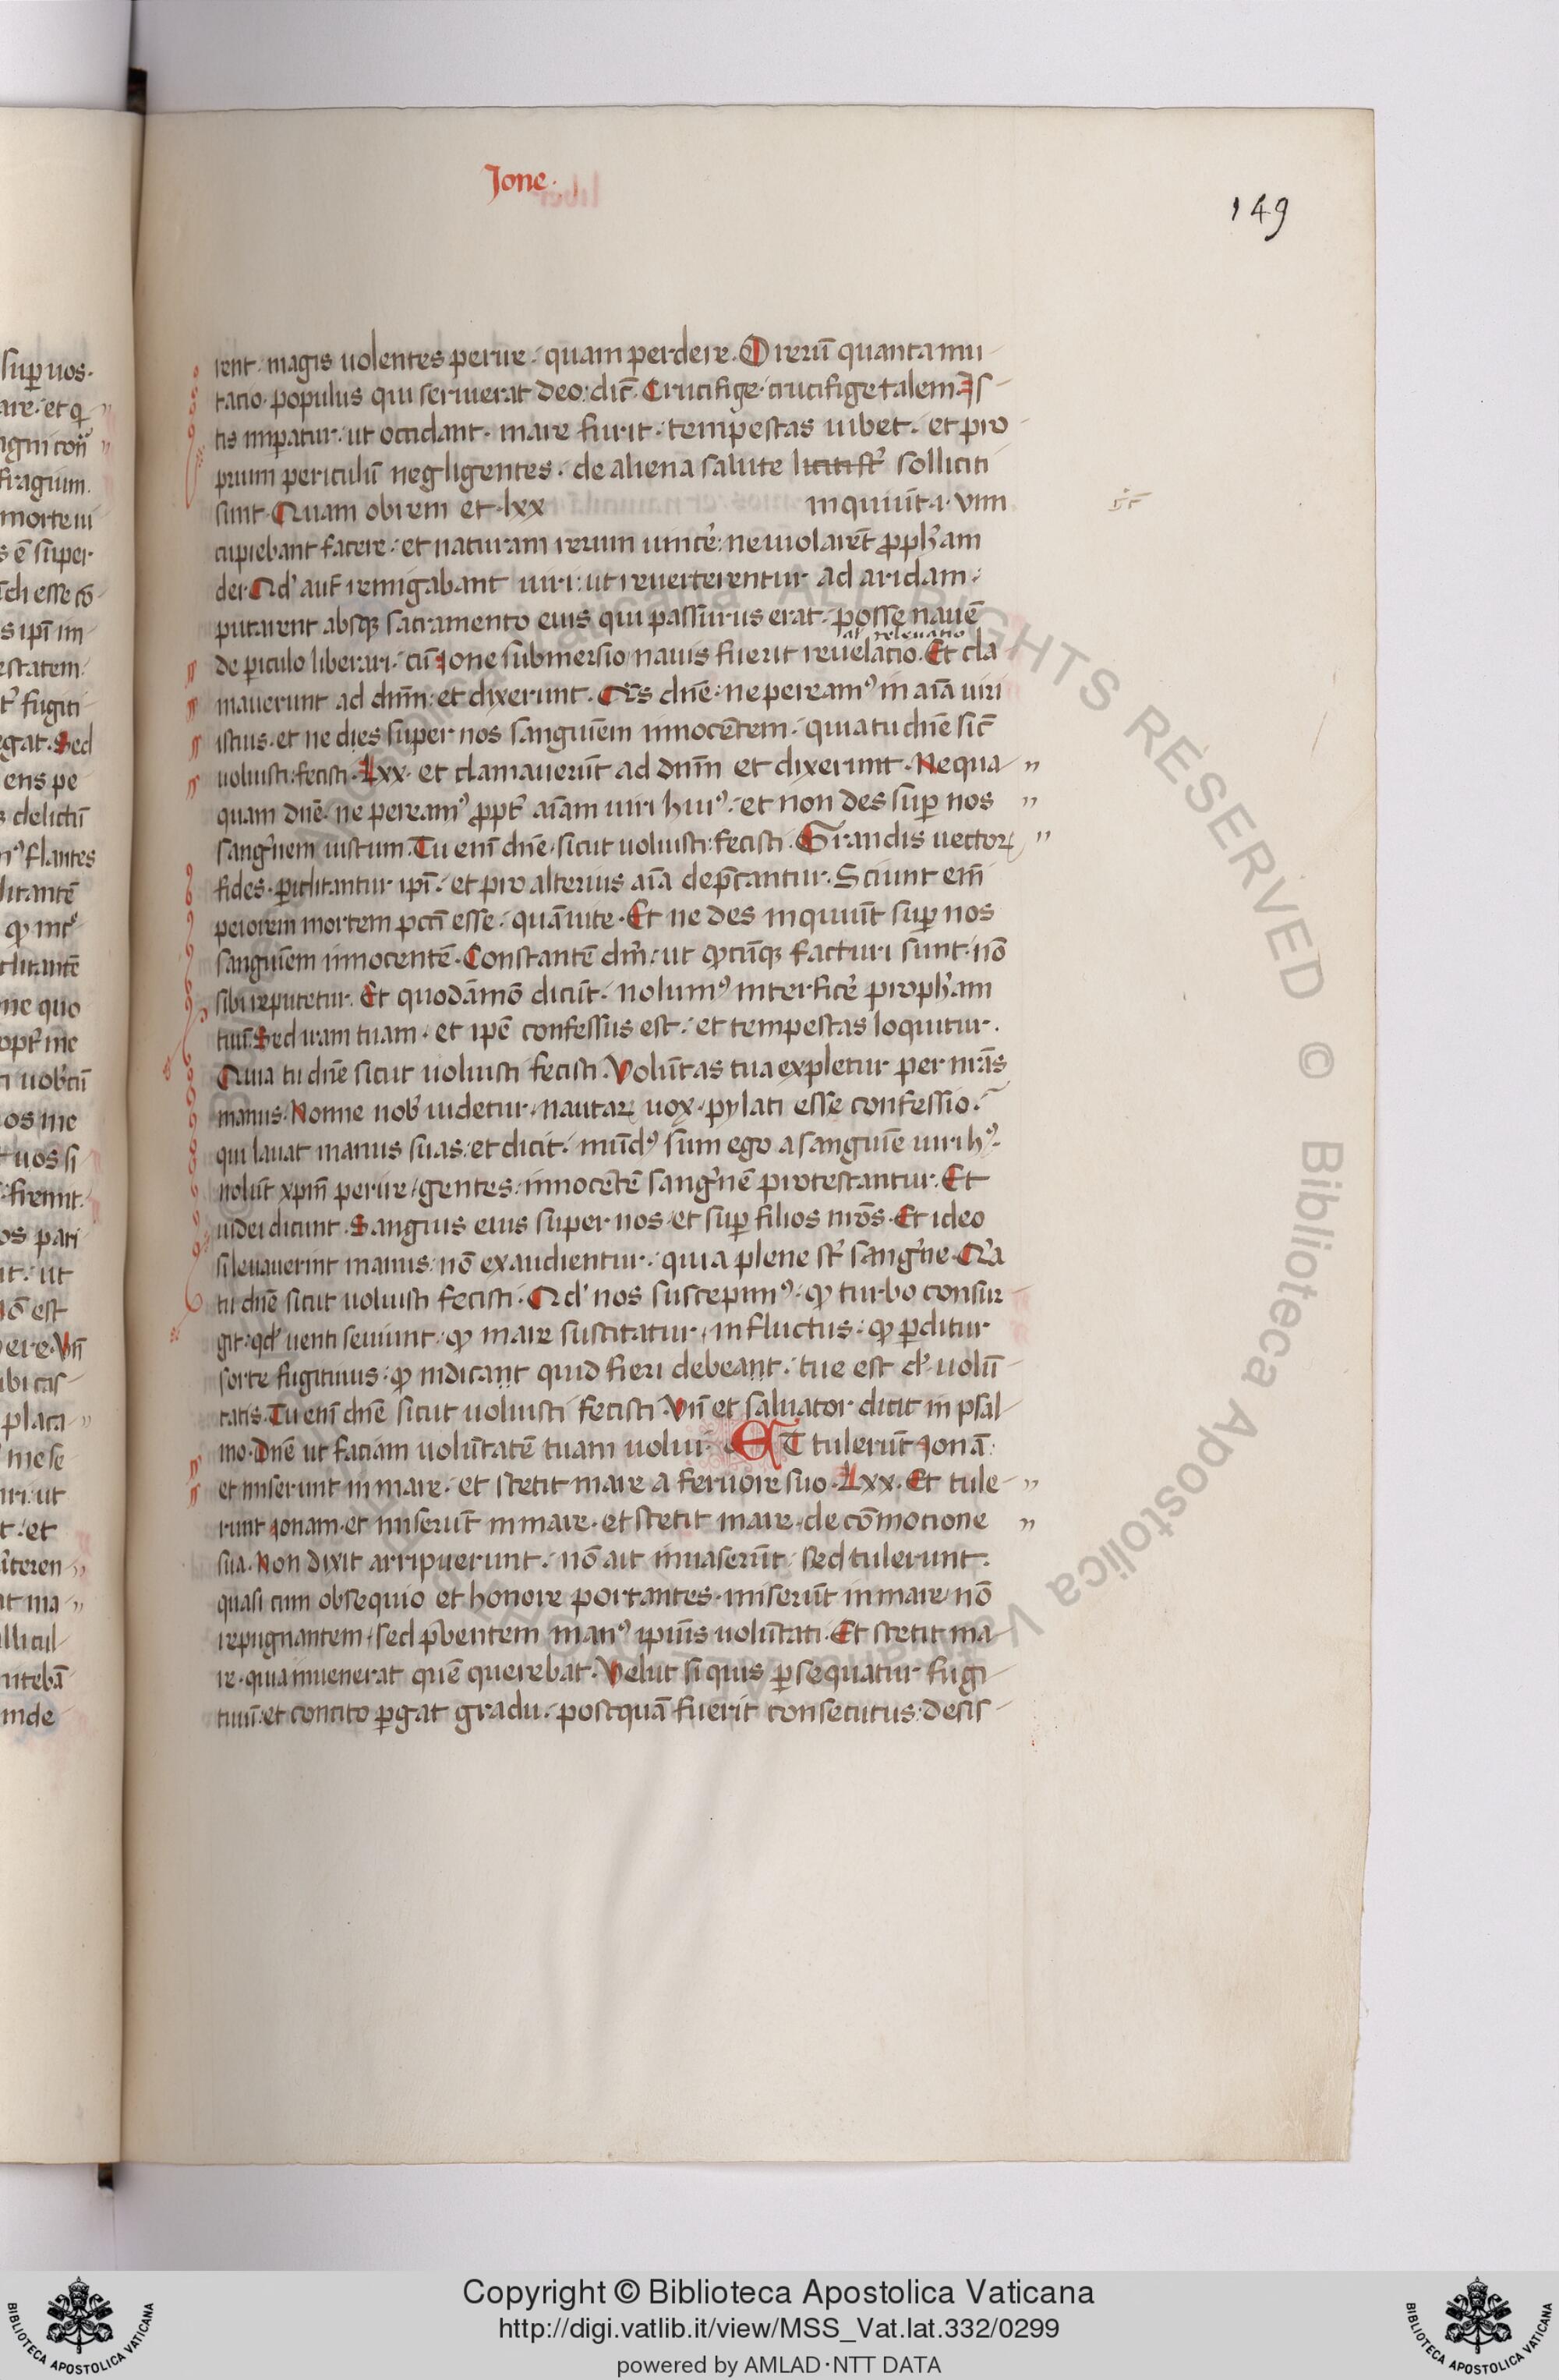 Jone.
149
rent. magis uolentes perire. quam perdere. O rerū quanta mu
tatio. populus qui seruierat deo: dic̄. Crucifige. crucifige talem. Is
tis imp̱atur. ut occidant. mare furit. tempestas iubet. et pro
prium periculū negligentes. de aliena salute solliciti
sunt. Quam ob rem et lxx inquiūt. i. vim
cupiebant facere. et naturam rerum uincē: ne uiolarēt ꝓph̄am
dei. Qd' aut̄ remigabant uiri: ut reuerterentur ad aridam.
putarent absqꝫ sacramento eius qui passurus erat. posse nauē
al' releuatio
de ꝑiculo liberari. cū Ione submersio nauis fuerit reuelatio. Et cla
mauerunt ad dnm̄: et dixerunt. Qs̄ dnē: ne pereamꝰ in aīa uiri
istius. et ne des super nos sanguinem innocētem. quia tu dnē sic̄
uoluisti: fecisti. Lxx. et clamauerūt ad dnm̄ et dixerunt. Nequa
quam dnē. ne pereamꝰ ꝓpt̄ aīam uiri huiꝰ. et non des suꝑ nos
sang̍nem iustum. Tu eni dnē. sicut uoluisti: fecisti. Grandis uectoꝝ
fides. ꝑiclitantur ipī. et pro alterius aīa dep̄cantur. Sciunt em̄
peiorem mortem pcc̄i esse. quā uite. Et ne des inquiūt suꝑ nos
sanguinem innocentē. Constantē dm̄. ut q̄cūqꝫ facturi sunt. nō
sibi reputetur. Et quodāmō dicūt. nolumꝰ interficē proph̄am
tuū. Sed iram tuam. et ipē confessus est. et tempestas loquitur.
Quia tu dnē sicut uoluisti fecisti. Volūtas tua expletur per nrās
manus. Nonne nob̄ uidetur. nautaꝝ uox. pylati esse confessio.
qui lauat manus suas. et dicit. mūdꝰ sum ego a sanguīe uiri hꝰ.
nolūt xpm̄ perire gentes. innocētē sang̍nē protestantur. Et
iudei dicunt. Sanguis eius super nos et suꝑ filios nrōs. Et ideo
si leuauerint manus: nō exaudientur. quia plene st̄ sang̍ne. Qa
tu dnē sicut uoluisti fecisti. Qd' nos suscepimꝰ. ꝙ turbo consur
git. qd' uenti seuiunt. ꝙ mare suscitatur in fluctus. ꝙ ꝓditur
sorte fugitiuus. ꝙ indicant quid fieri debeant. tue est d'. uolū
tatis. Tu eni dnē sicut uoluisti fecisti. Vn̄ et saluator dicit in psal
mo. Dnē ut faciam uolūtatē tuam uolui. ET tulerūt Jonā.
et miserunt in mare. et stetit mare a feruore suo. Lxx. Et tule
runt Jonam. et miserūt in mare. et stetit mare. de cōmotione
sua. Non dixit arripuerunt. nō ait inuaserūt. sed tulerunt.
quasi cum obsequio et honore portantes. miserūt in mare. nō
repugnantem. sed p̄bentem manꝰ ipsius uolūtati. Et stetit ma
re. quia inuenerat quē querebat. Velut si quis ꝑsequatur fugi
tiuū. et concito ꝑgat gradu. postquā fuerit consecutus. desis
Copyright © Biblioteca Apostolica Vaticana
http://digi.vatlib.it/view/MSS_Vat.lat.332/0299
powered by AMLAD·NTT DATA